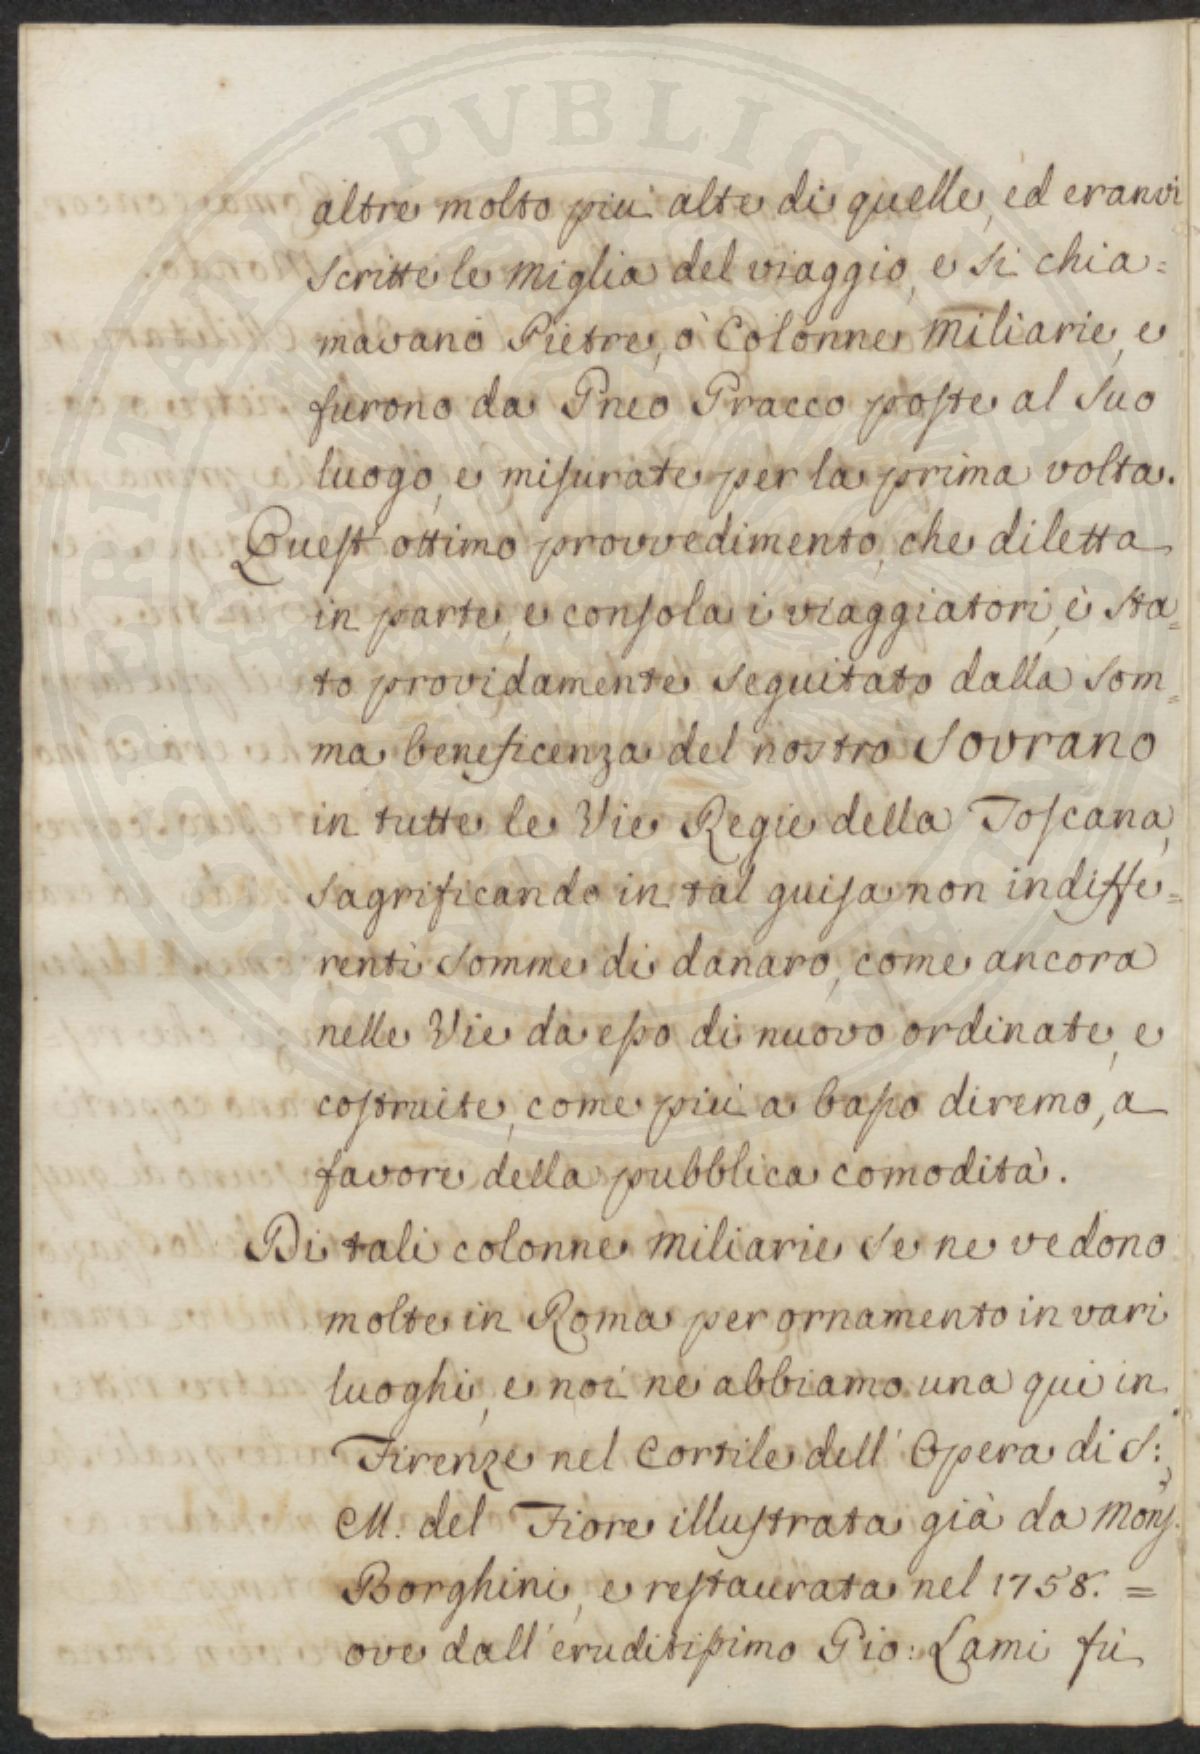 altre molto più alte di quelle, ed eranvi
scritte le miglia del viaggio, e si chia=
mavano Pietre, ò Colonne miliarie, e
furono da Gneo Gracco poste al suo
luogo, e misurate per la prima volta.
Quest' ottimo provvedimento, che diletta
in parte, e consola i viaggiatori, è sta=
to providamente seguitato dalla som=
ma beneficenza del nostro Sovrano
in tutte le Vie Regie della Toscana,
sagrificando in tal guisa non indiffe=
renti somme di danaro, come ancora
nelle Vie da esso di nuovo ordinate, e
costruite, come più a basso diremo, a
favore della pubblica comodità.
Di tali colonne miliarie se ne vedono
molte in Roma per ornamento in vari
luoghi, e noi ne abbiamo una qui in
Firenze nel Cortile dell' Opera di S:
M. del Fiore illustrata già da Mons.
Borghini, e restaurata nel 1758. =
ove dall' eruditissimo Gio: Lami fù